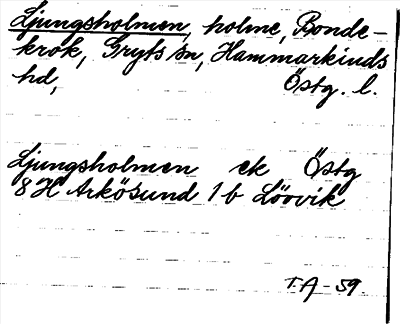 Ljungsholmen, holme, Bonde-
krok, Gryts sn, Hammarkinds
hd, Östg. l.
Ljungsholmen ek Östg
8H Arkösund 1b Lövvik
T.A-59